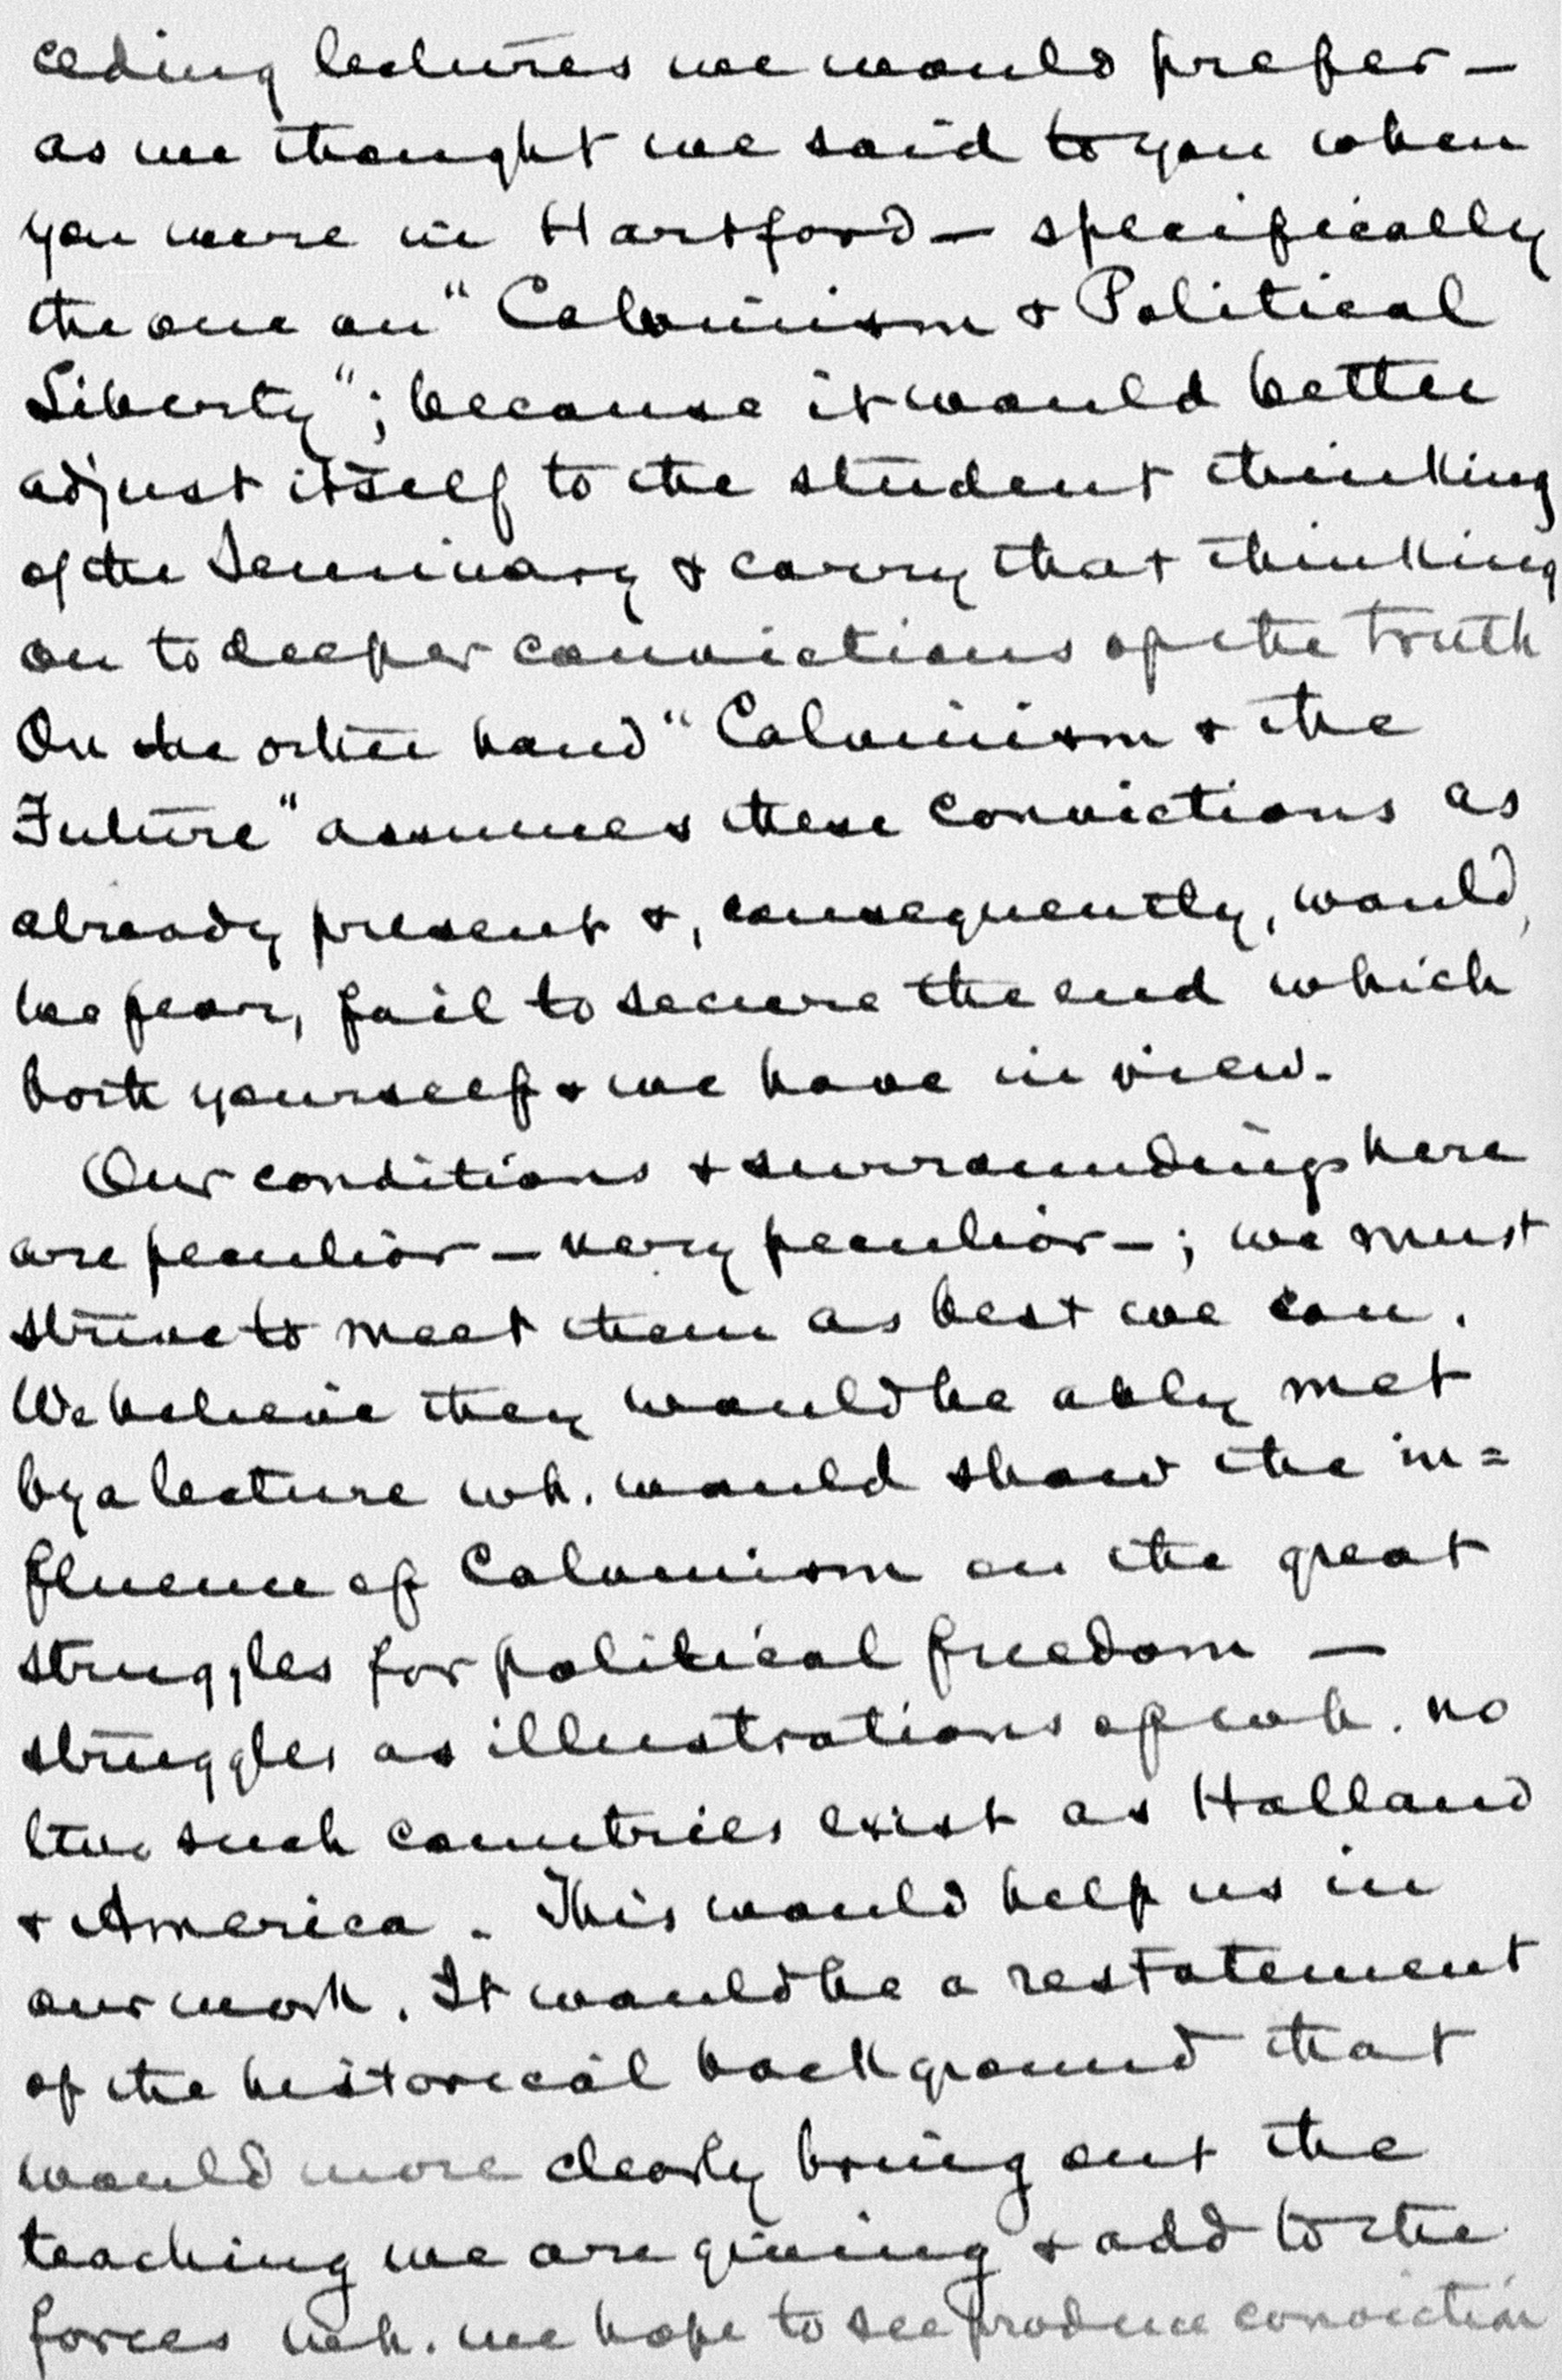 ceding lectures we would prefer —
as we thought we said to you when
you were in Hartford — specifically
the one on "Calvinism & Political
Liberty"; because it would better
adjust itself to the student thinking
of the Seminary & carry that thinking
on to deeper convictions of the truth
On the other hand "Calvinism & the
Future" assumes these convictions as
already present &, consequently, would,
we fear, fail to secure the end which
both yourself & we have in view.
Our conditions & surroundings here
are peculiar — very peculiar —; we must
strive to meet them as best we can.
We believe they would be ably met
by a lecture wh. would show the in=
fluence of Calvinism on the great
struggles for political freedom —
struggles as illustrations of wh. no
two such countries exist as Holland
& America. This would help us in
our work. It would be a restatement
of the historical background that
would more clearly bring out the
teaching we are giving & add to the
forces wh. we hope to see produce conviction